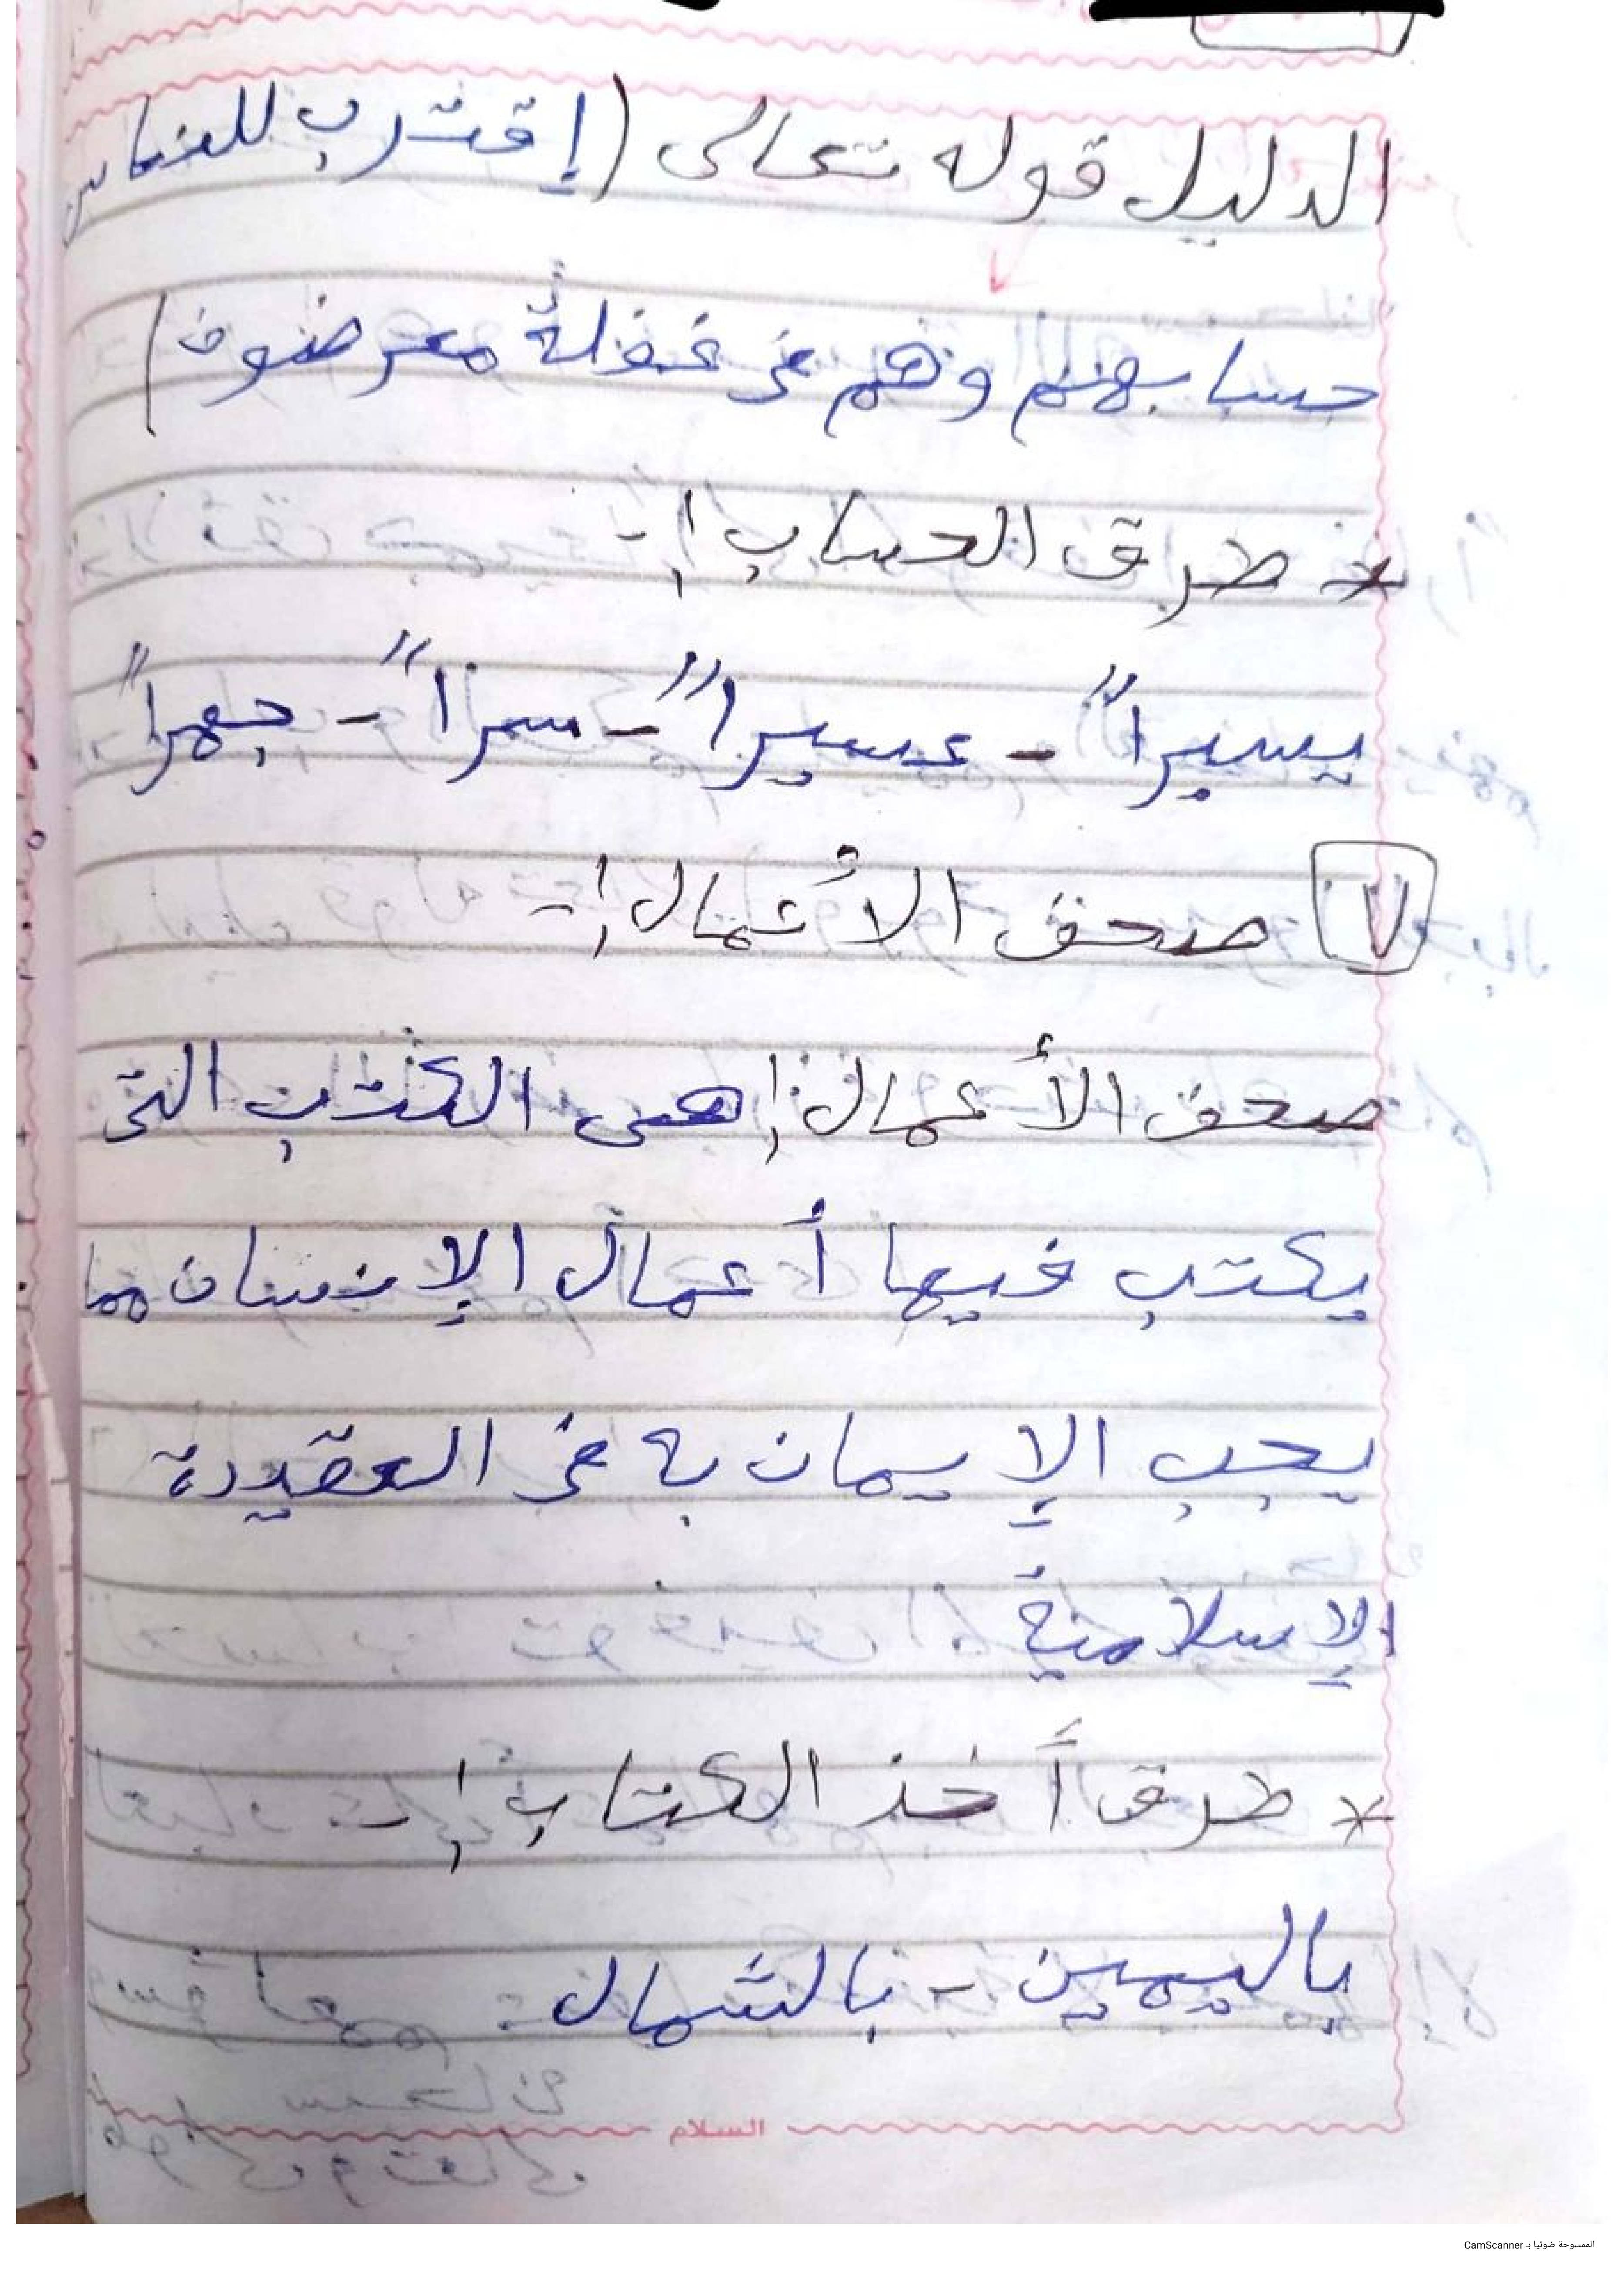 الدليل قوله تعالى (إقترب للناس
حسابهم وهم في غفلةً معرضون)
* طرق الحساب :-
يسيراً - عسيراً - سراً - جهراً
٧ صحف الأعمال :-
صحف الأعمال: هى الكتب التى
يكتب فيها أعمال الإنسان مما
يجب الإيمان به في العقيدة
الإسلامية
* طرق أخذ الكتاب :-
باليمين - بالشمال
السلام
الممسوحة ضوئيا بـ CamScanner